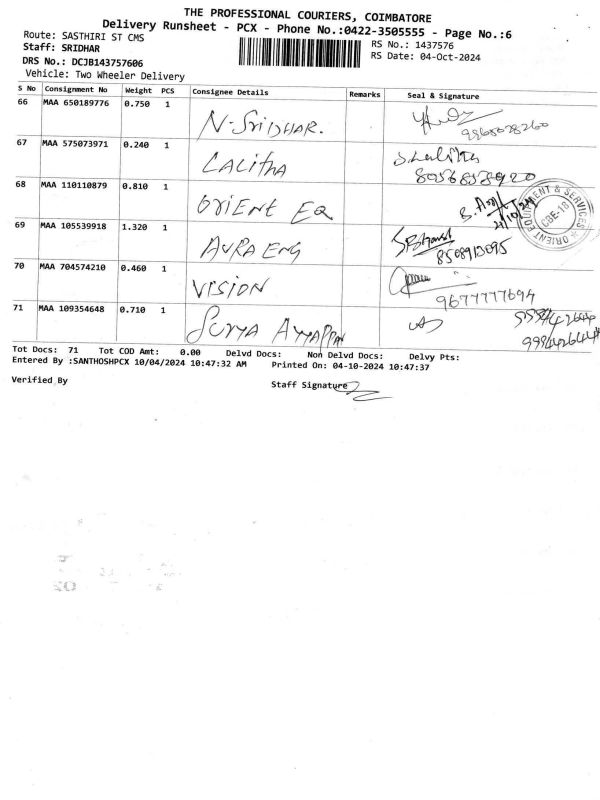 THE PROFESSIONAL COURIERS, COIMBATORE
Delivery Runsheet - PCX - Phone No.:0422-3505555 - Page No.:6
Route: SASTHIRI ST CMS
RS No.: 1437576
Staff: SRIDHAR
RS Date: 04-Oct-2024
DRS No.: DCJB143757606
Vehicle: Two Wheeler Delivery
S No Consignment No Weight PCS Consignee Details Remarks Seal & Signature
66 MAA 650189776 0.750 1 N-SriDHAR.
67 MAA 575073971 0.240 1 LALITHA
68 MAA 110110879 0.810 1 ORIENT EQ
ORIENT EQUIPMENT & SERVICES
CBE-18
69 MAA 105539918 1.320 1 AURA ENG
8508913095
70 MAA 704574210 0.460 1 VISION
9677777694
71 MAA 109354648 0.710 1 SURYA AYYAPPAN
Tot Docs: 71 Tot COD Amt: 0.00 Delvd Docs: Non Delvd Docs: Delvy Pts:
Entered By :SANTHOSHPCX 10/04/2024 10:47:32 AM Printed On: 04-10-2024 10:47:37
Verified By
Staff Signature